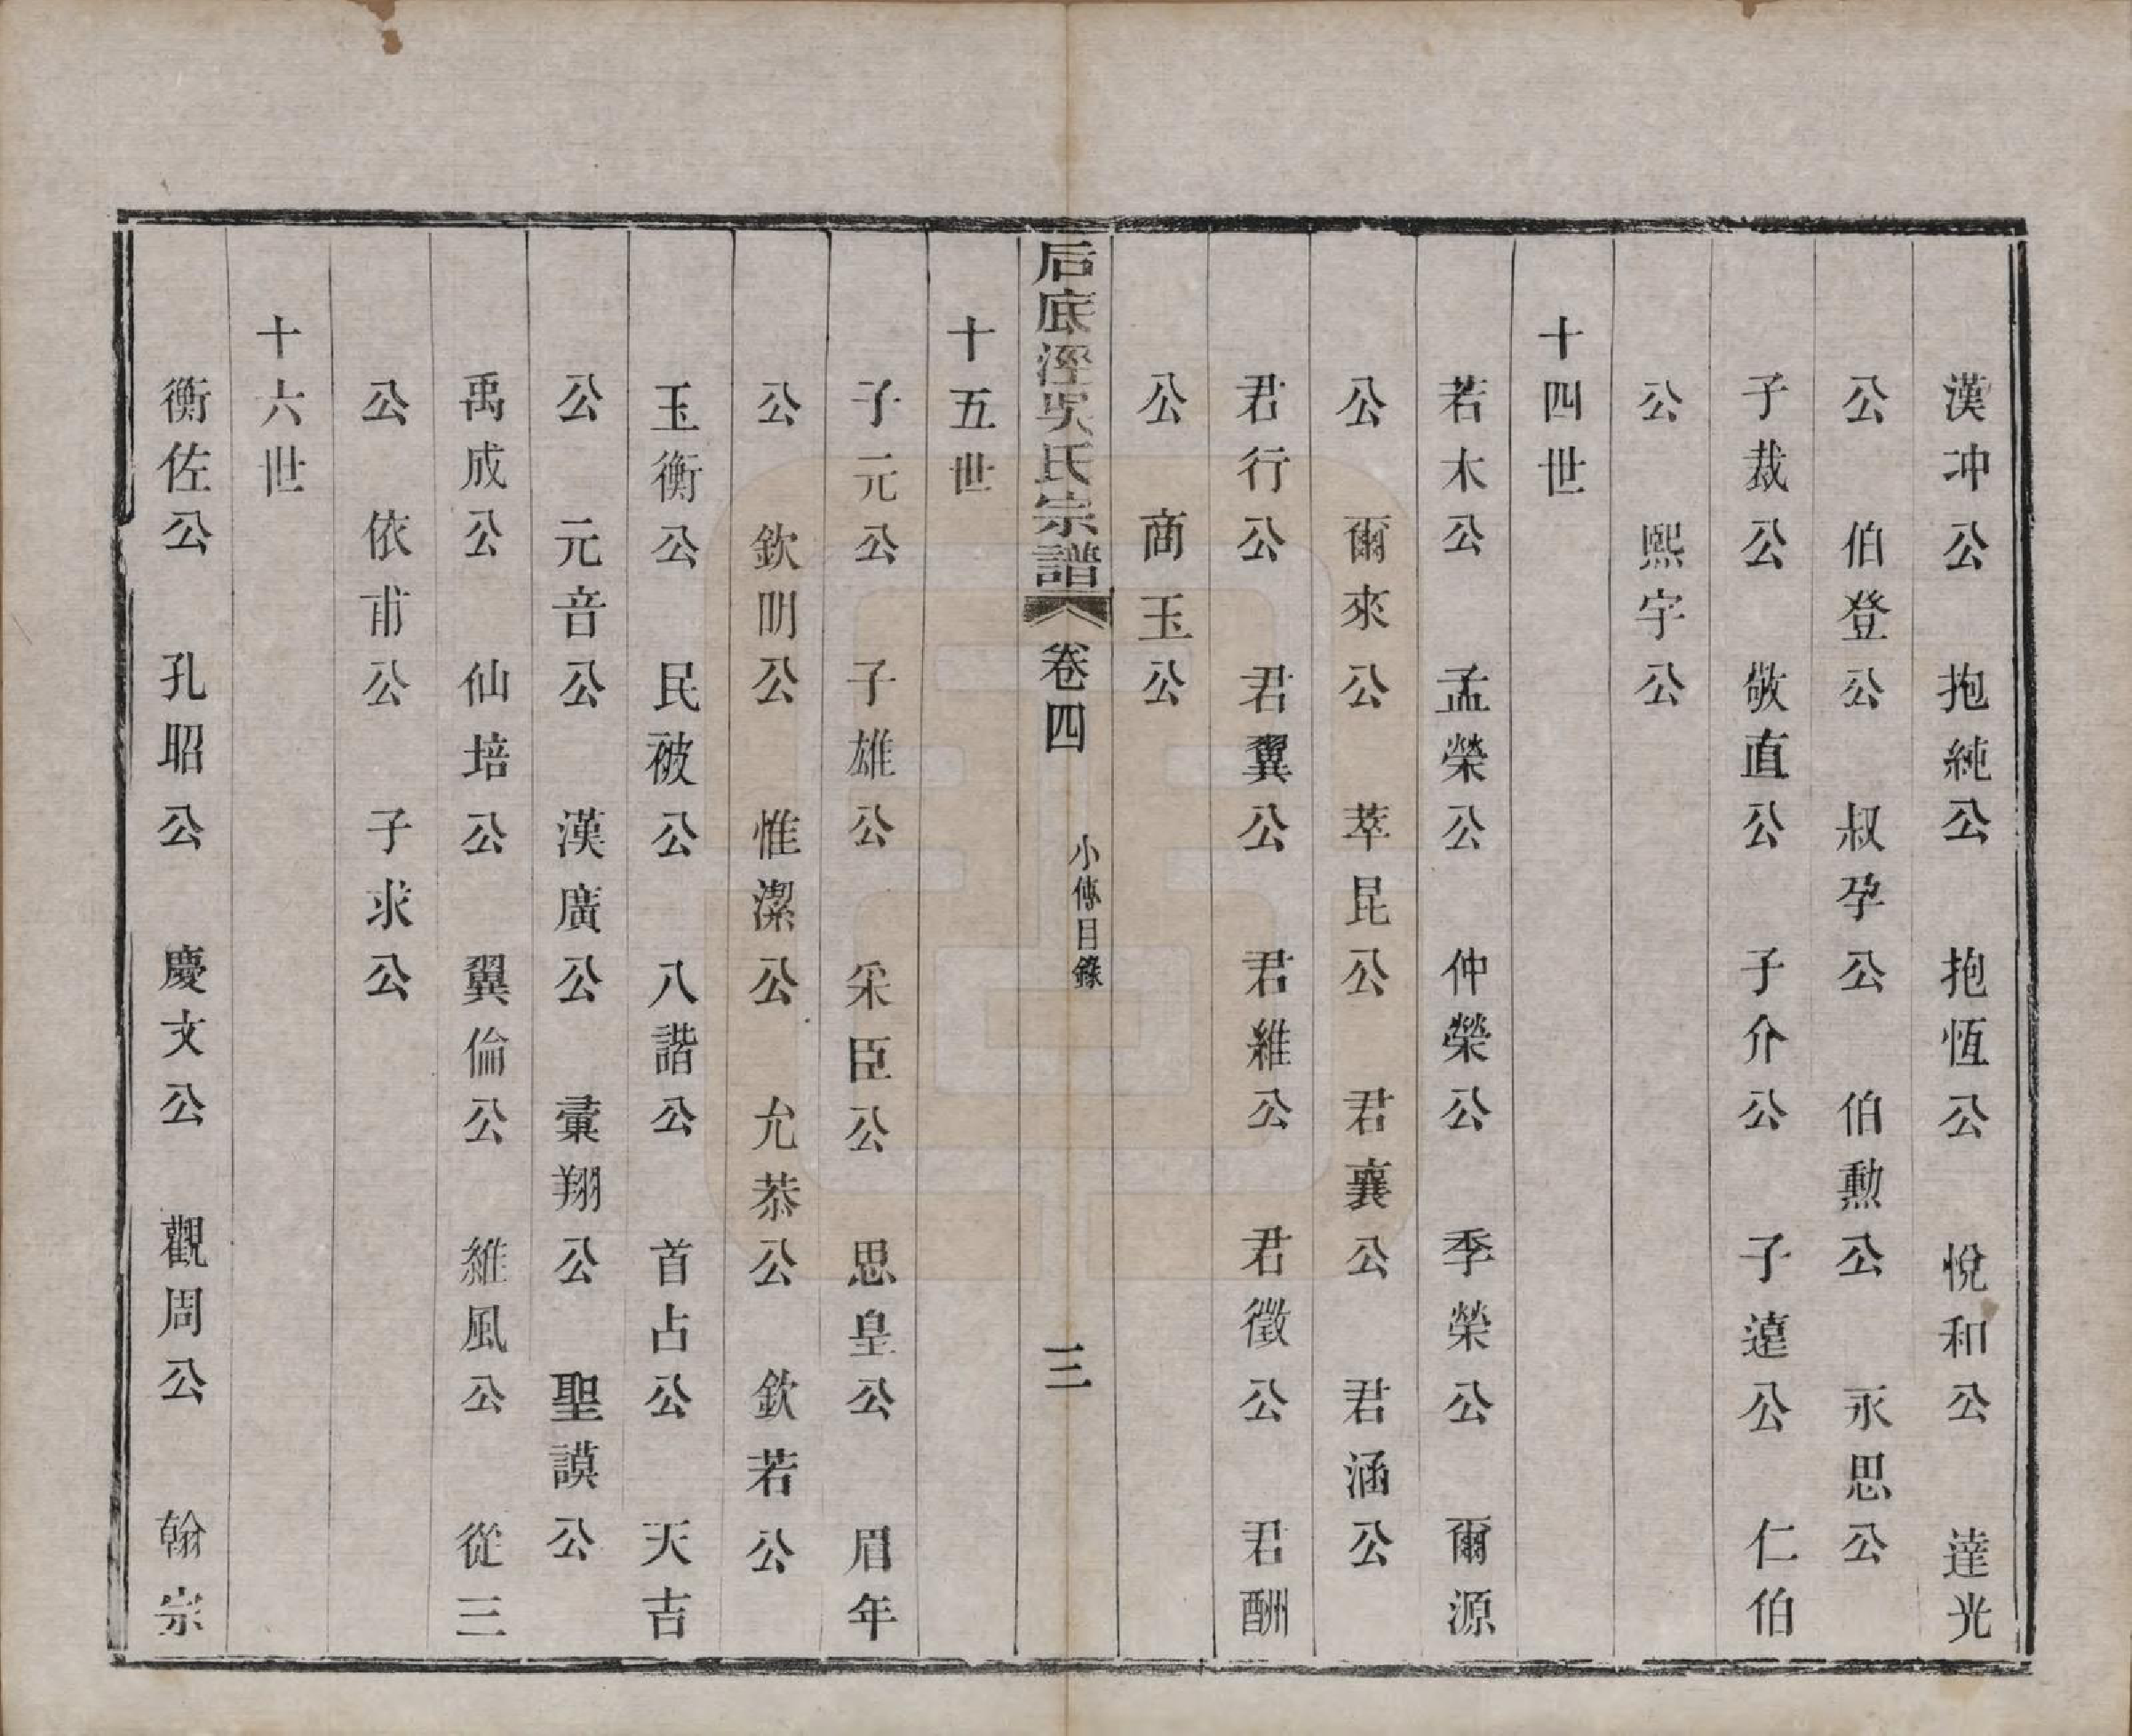 漢冲公　抱純公　抱恆公　悅和公　達光
公　伯登公　叔孕公　伯勲公　永思公
子裁公　敬直公　子介公　子遠公　仁伯
公　熙宇公
十四世
若木公　孟榮公　仲榮公　季榮公　爾源
公　爾來公　萃昆公　君襄公　君涵公
君行公　君翼公　君維公　君徵公　君酬
公　商玉公
后底涇吳氏宗譜　卷四　小傳目錄　三
十五世
子元公　子雄公　采臣公　思皇公　眉年
公　欽明公　惟潔公　允恭公　欽若公
玉衡公　民被公　八諧公　首占公　天吉
公　元音公　漢廣公　彙翔公　聖謨公
禹成公　仙培公　翼倫公　維風公　從三
公　依甫公　子求公
十六世
衡佐公　孔昭公　慶文公　觀周公　翰宗